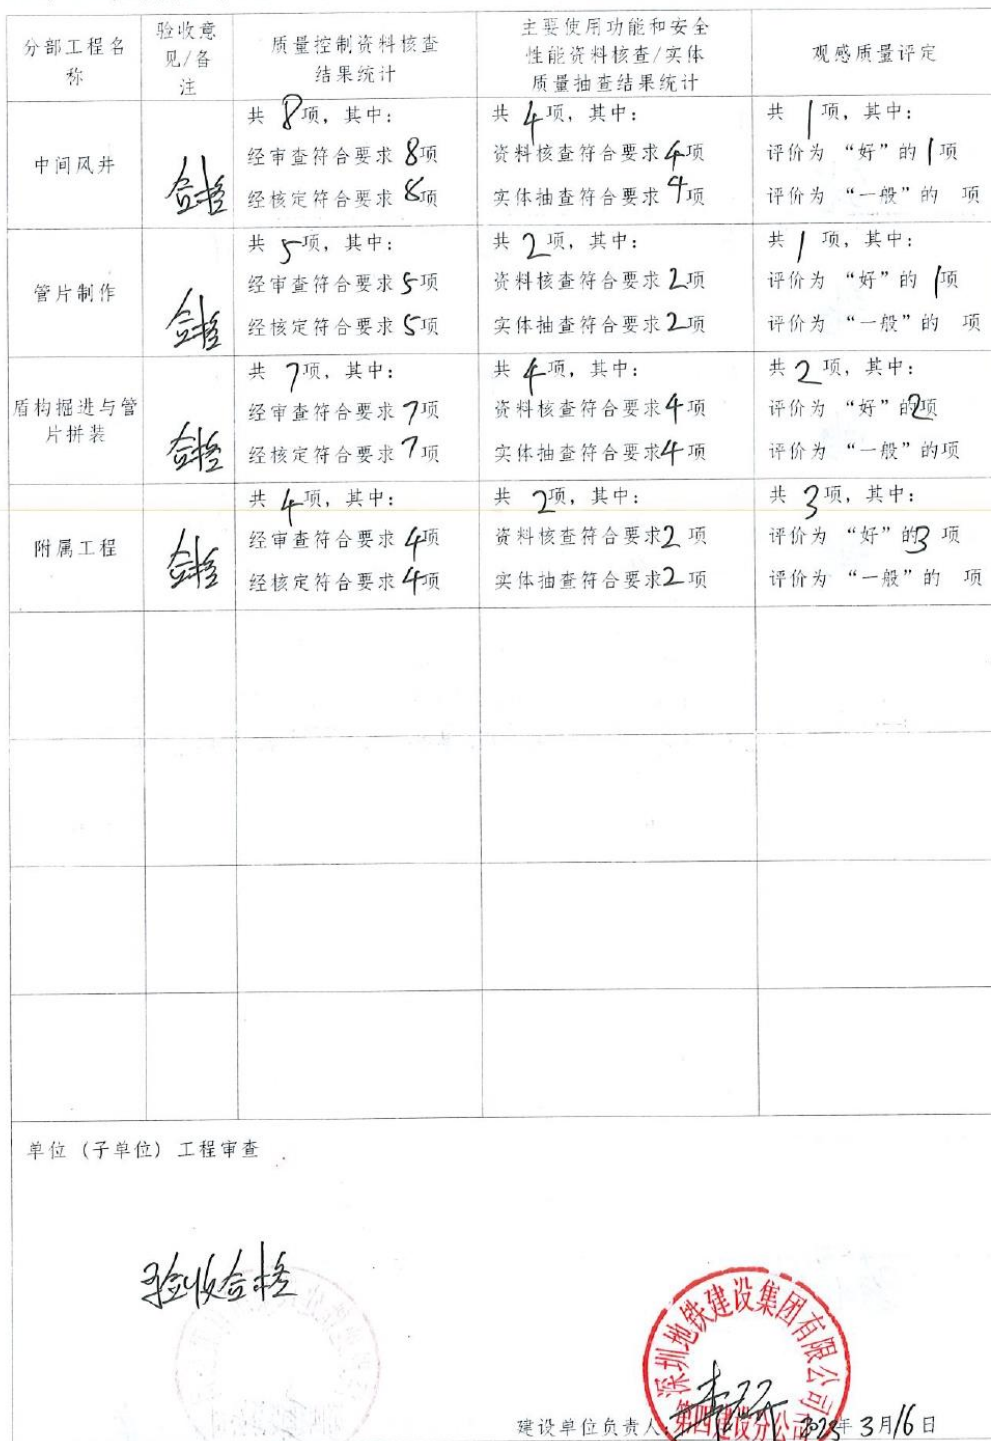 分部工程名
称
验收意
见/备
注
质量控制资料核查
结果统计
主要使用功能和安全
性能资料核查/实体
质量抽查结果统计
观感质量评定
中间风井
合格
共 8项,其中:
经审查符合要求 8项
经核定符合要求 8项
共 4项,其中:
资料核查符合要求4项
实体抽查符合要求 4项
共 1项,其中:
评价为 “好”的1项
评价为 “一般”的 项
管片制作
合格
共 5项,其中:
经审查符合要求5项
经核定符合要求5项
共 2项,其中:
资料核查符合要求2项
实体抽查符合要求2项
共 1 项,其中:
评价为 “好”的 1项
评价为 “一般”的 项
盾构掘进与管
片拼装
合格
共 7项,其中:
经审查符合要求7项
经核定符合要求7项
共 4项,其中:
资料核查符合要求4项
实体抽查符合要求4项
共2项,其中:
评价为 “好”的2项
评价为 “一般”的项
附属工程
合格
共 4项,其中:
经审查符合要求4项
经核定符合要求4项
共 2项,其中:
资料核查符合要求2项
实体抽查符合要求2项
共 3项,其中:
评价为 “好”的3 项
评价为 “一般”的 项
单位(子单位)工程审查
验收合格
深圳地铁建设集团有限公司
第四建设分公司
建设单位负责人: 2023年3月16日